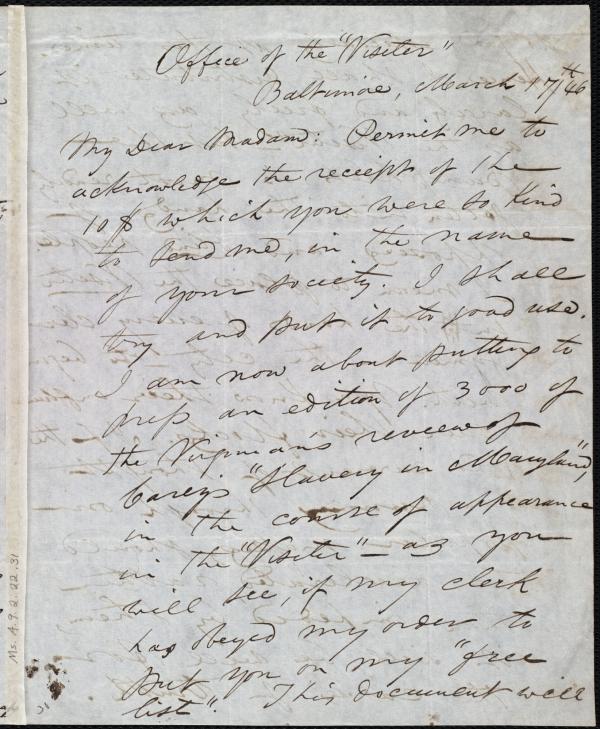 Office of the "Visiter"
Baltimore, March 17th/46
My Dear Madam: Permit me to
acknowledge the receipt of the
10$ which you were so kind
to send me, in the name
of your society. I shall
try and put it to good use.
I am now about putting to
press an edition of 3000 of
the Virginian's review of
Carey's "Slavery in Maryland",
in the course of appearance
in the "Visiter" — as you
will see, if my clerk
has obeyed my order to
put you on my "free
list". This document will
Ms. A.9.2.22.31